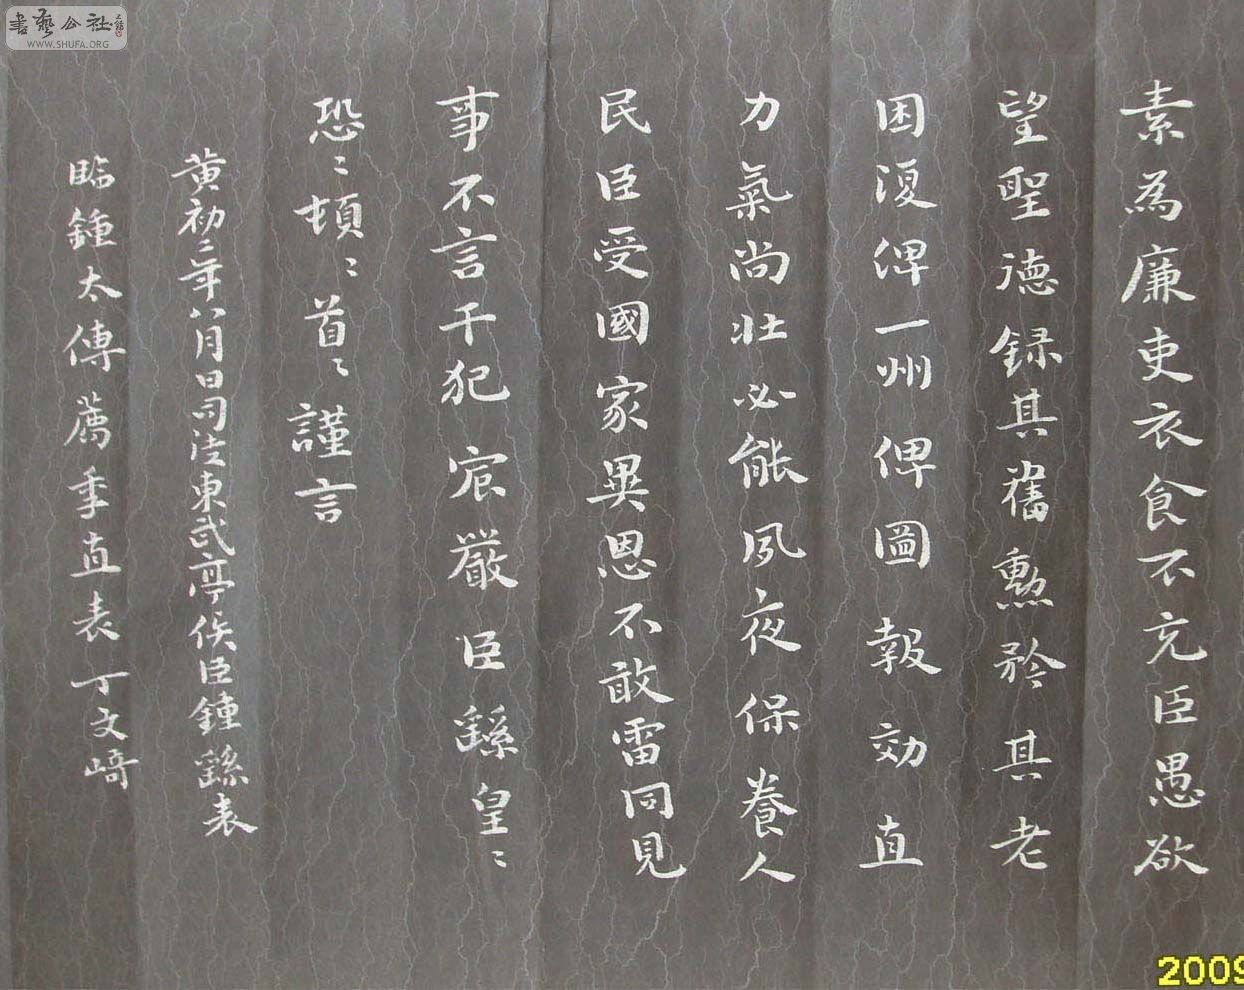 素為廉吏衣食不充臣愚欲
望聖德録其舊勲矜其老
困復俾一州俾圖報効直
力氣尚壯必能夙夜保養人
民臣受國家異恩不敢雷同見
事不言干犯宸嚴臣繇皇〻
恐〻頓〻首〻謹言
黃初二年八月日司徒東武亭侯臣鍾繇表
臨鍾太傅薦季直表丁文﨑
書藝公社
WWW.SHUFA.ORG
2009